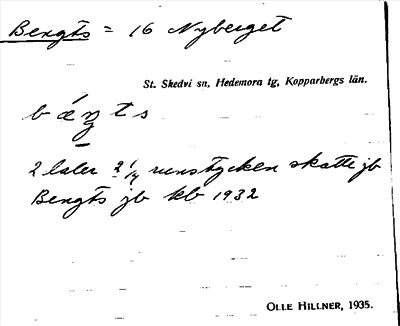 Bengts = 16 Nyberget
St. Skedvi sn, Hedemora tg, Kopparbergs län.
bæŋts
2 laler 2 1/4 runstycken skatte jb
Bengts jb kb 1932
OLLE HILLNER, 1935.